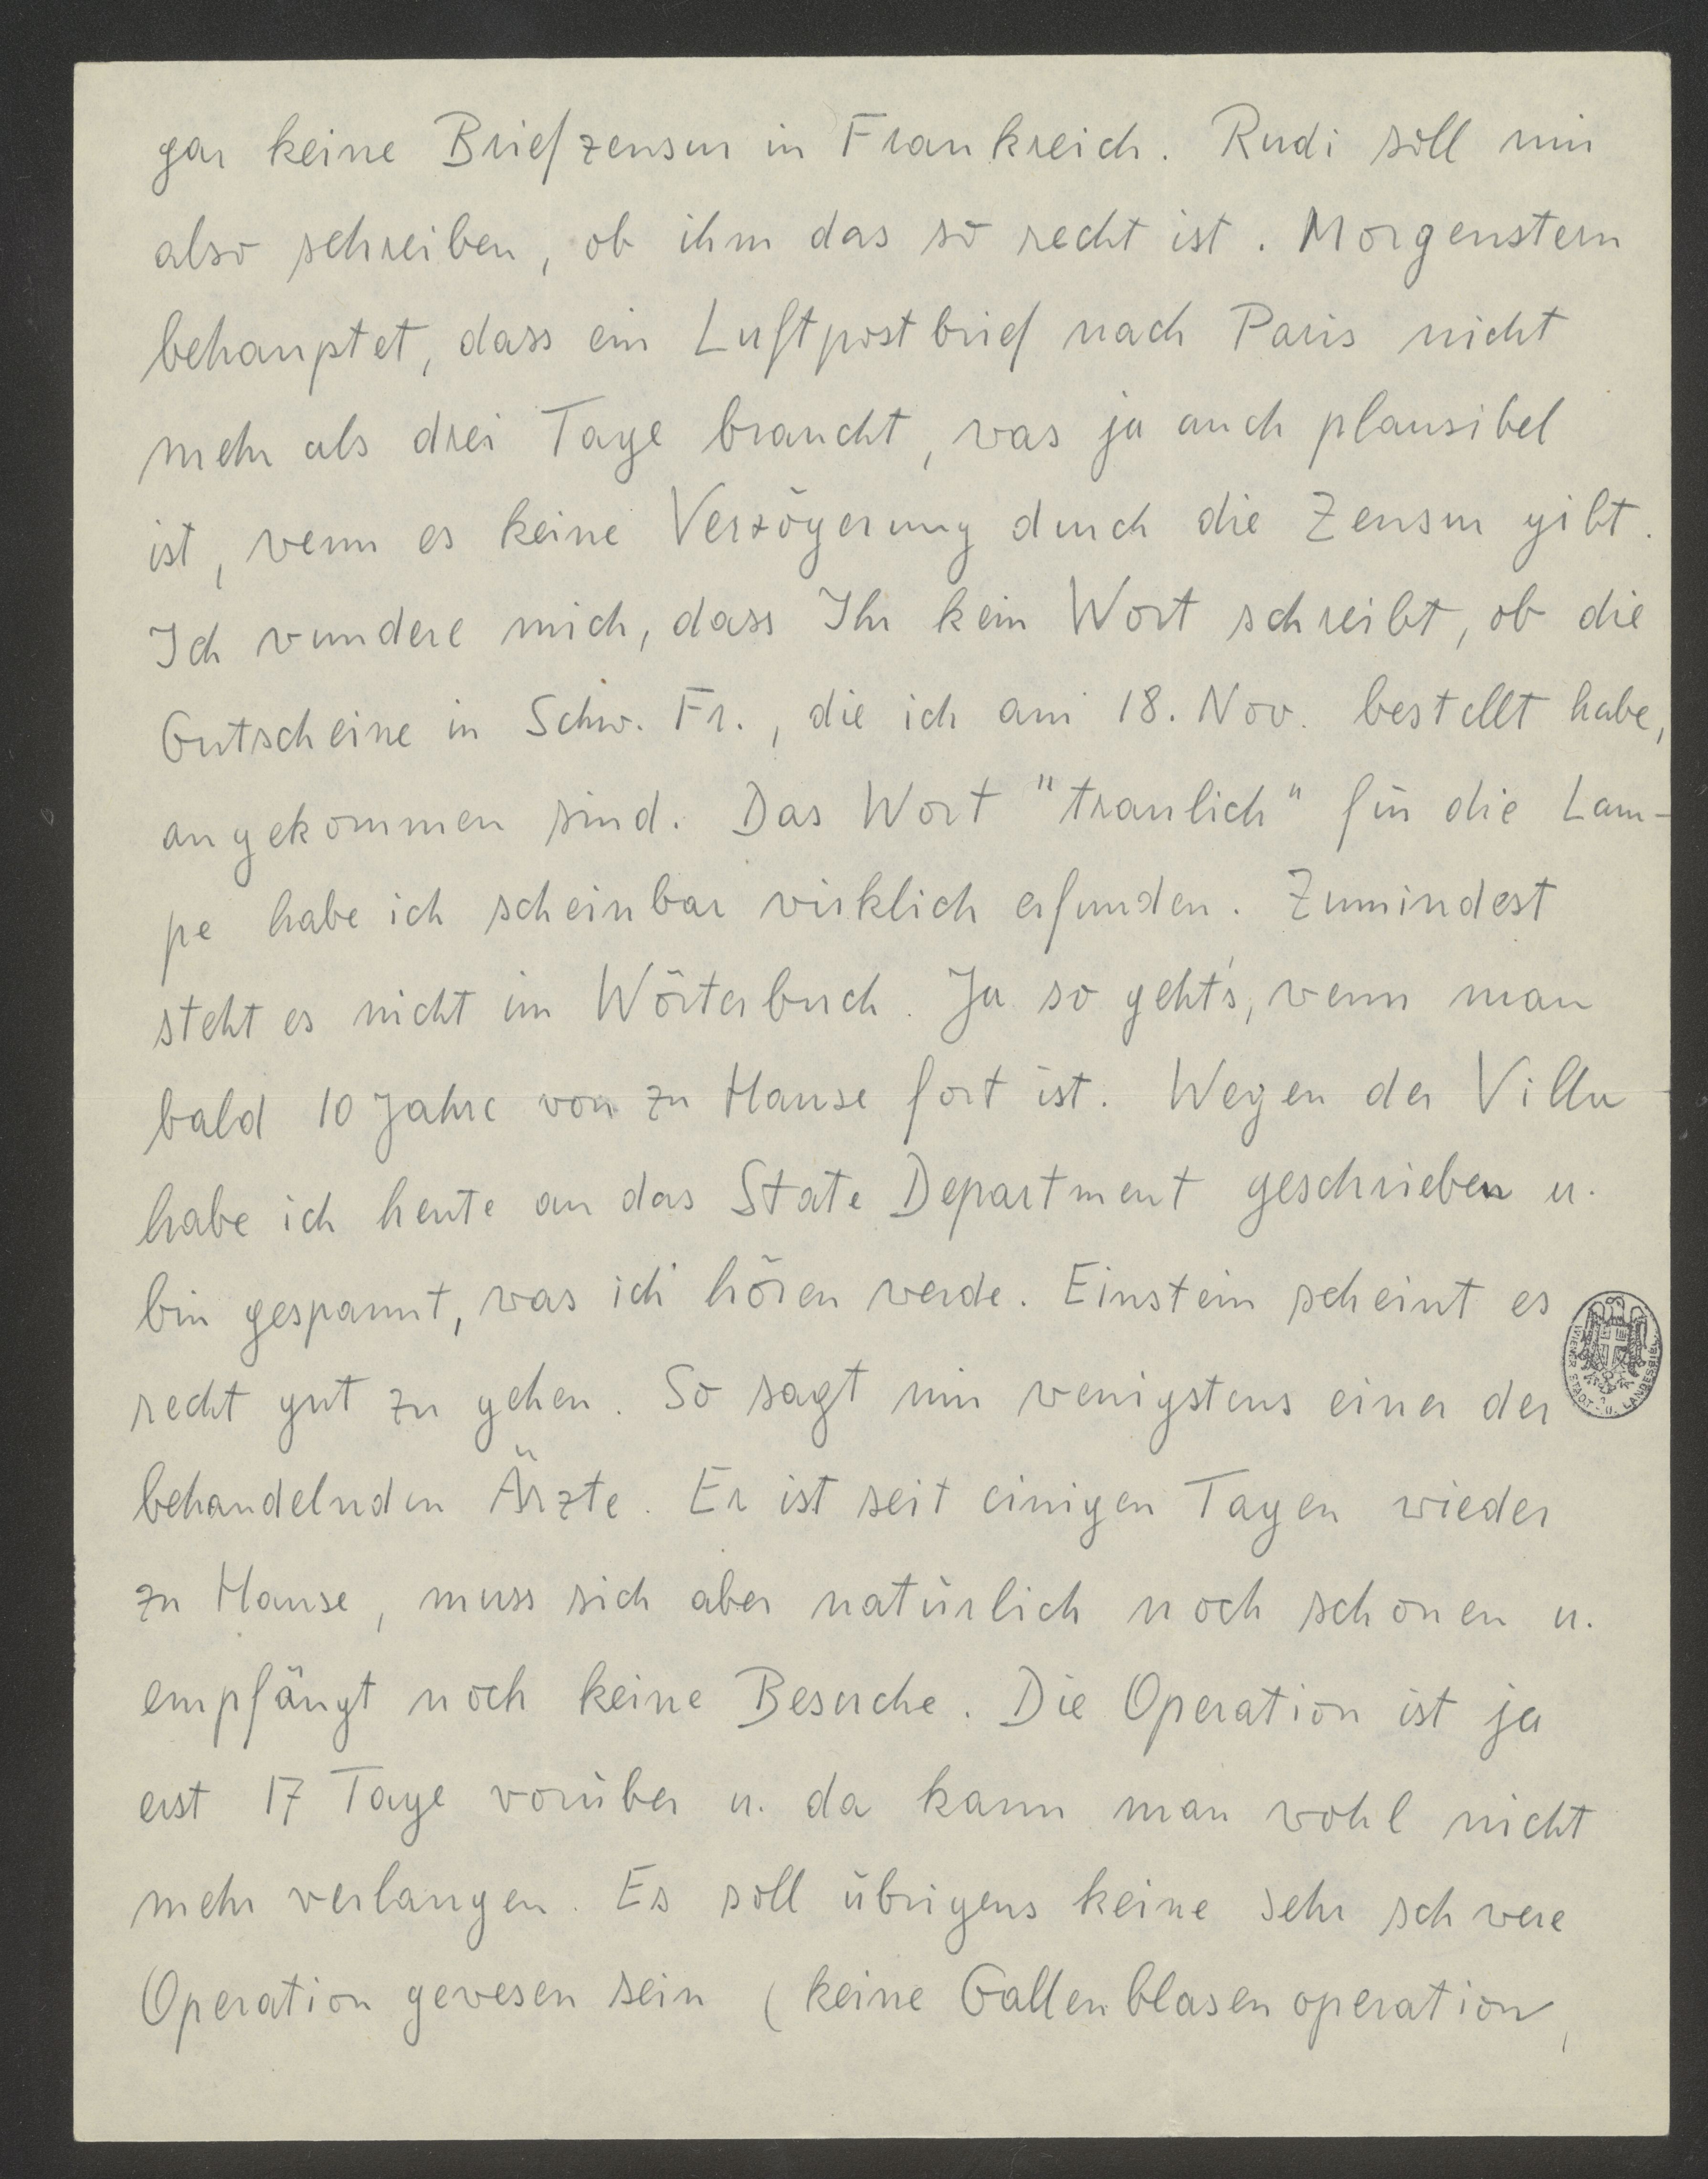 gar keine Briefzensur in Frankreich. Rudi soll mir
also schreiben, ob ihm das so recht ist. Morgenstern
behauptet, dass ein Luftpostbrief nach Paris nicht
mehr als drei Tage braucht, was ja auch plausibel
ist, wenn es keine Verzögerung durch die Zensur gibt.
Ich wundere mich, dass Ihr kein Wort schreibt, ob die
Gutscheine in Schw. Fr., die ich am 18. Nov. bestellt habe,
angekommen sind. Das Wort "traulich" für die Lam-
pe habe ich scheinbar wirklich erfunden. Zumindest
steht es nicht im Wörterbuch. Ja so geht's, wenn man
bald 10 Jahre von zu Hause fort ist. Wegen der Villa
habe ich heute an das State Department geschrieben u.
bin gespannt, was ich hören werde. Einstein scheint es
recht gut zu gehen. So sagt mir wenigstens einer der
behandelnden Ärzte. Er ist seit einigen Tagen wieder
zu Hause, muss sich aber natürlich noch schonen u.
empfängt noch keine Besuche. Die Operation ist ja
erst 17 Tage vorüber u. da kann man wohl nicht
mehr verlangen. Es soll übrigens keine sehr schwere
Operation gewesen sein (keine Gallenblasenoperation,
WIENER STADT- U. LANDESBIBL.